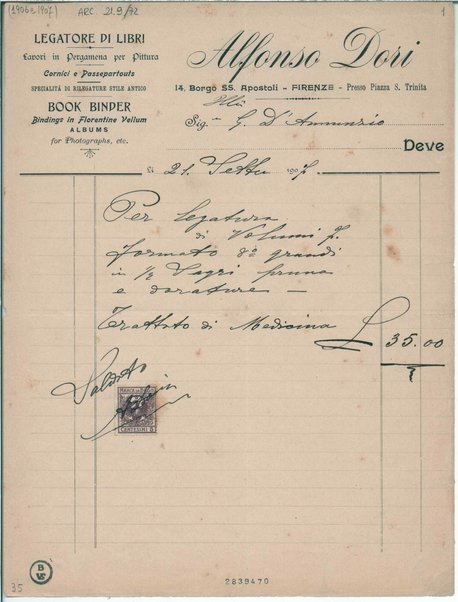 (1906-1907)
ARC. 21.9/92
1
LEGATORE DI LIBRI
Lavori in Pergamena per Pittura
Cornici e Passepartouts
SPECIALITÀ DI RILEGATURE STILE ANTICO
BOOK BINDER
Bindings in Florentine Vellum
ALBUMS
for Photographs, etc.
Alfonso Dori
14, Borgo SS. Apostoli - FIRENZE - Presso Piazza S. Trinita
Sig. G. D'Annunzio
Deve
Lì 21 Sette 1907
Per legatura
di Volumi 7.
formato 8º grandi
in ½
e dorature —
Trattato di Medicina £ 35.00
Saldato
MARCA DA BOLLO
CENTESIMI 5
B
35
2839470